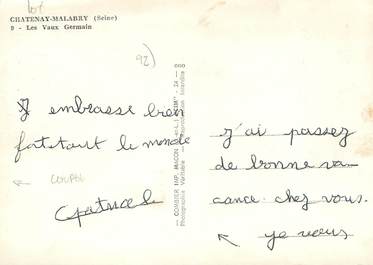 CHATENAY-MALABRY (Seine)
9 - Les Vaux Germain
92)
j'ai passez
de bonne va
cance chez vous.
je vous
embrasse bien
fort tout le monde
COMBIER IMP. MACON
Photographie Véritable - Reproduction Interdite